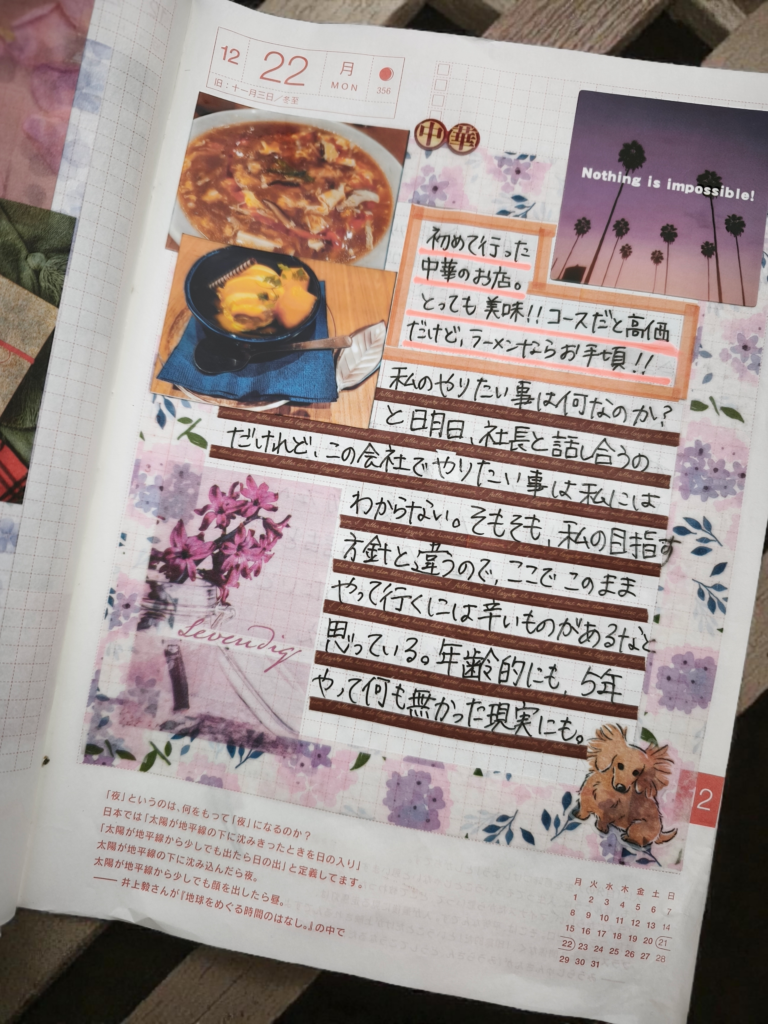 12
22
月
MON
356
旧：十一月三日／冬至
中華
Nothing is impossible!
初めて行った
中華のお店。
とっても美味!!コースだと高価
だけど、ラーメンならお手頃!!
私のやりたい事は何なのか?
と日明日、社長と話し合うの
だけれど、この会社でやりたい事は私には
わからない。そもそも、私の目指す
方針と違うので、ここでこのまま
やって行くには辛いものがあるなと
思っている。年齢的にも、5年
やって何も無かった現実にも。
Levendig
2
「夜」というのは、何をもって「夜」になるのか？
日本では「太陽が地平線の下に沈みきったときを日の入り」
「太陽が地平線から少しでも出たら日の出」と定義してます。
太陽が地平線の下に沈み込んだら夜。
太陽が地平線から少しでも顔を出したら昼。
――井上毅さんが『地球をめぐる時間のはなし。』の中で
月 火 水 木 金 土 日
1 2 3 4 5 6 7
8 9 10 11 12 13 14
15 16 17 18 19 20 21
22 23 24 25 26 27 28
29 30 31